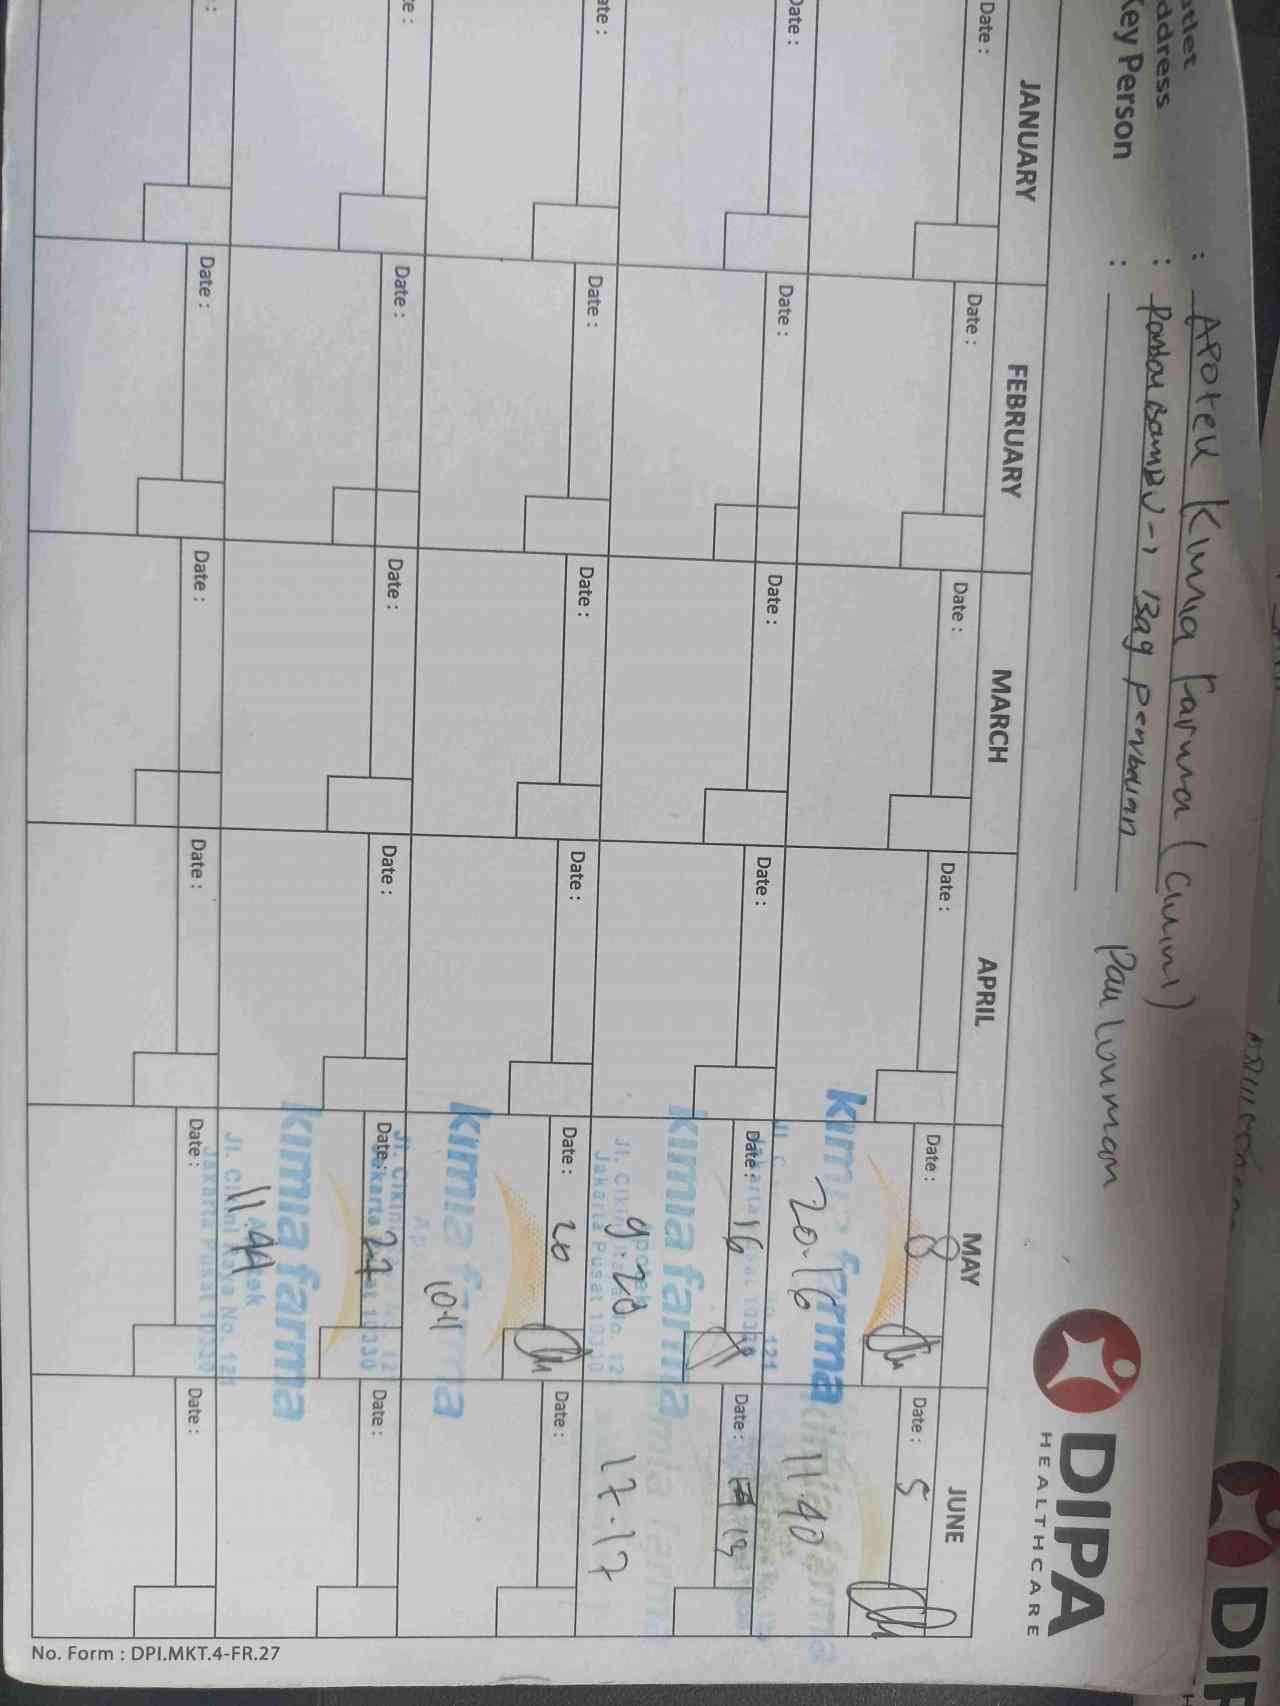 DIPA
HEALTHCARE
: Apotek Kimia Farma (Cikini)
ddress :
Key Person :
JANUARY FEBRUARY MARCH APRIL MAY JUNE
Date : Date : Date : Date : Date : 8 Date : 5
kimia farma
20.16 11.40
Date : Date : Date : Date : Date : 16 Date : 13
kimia farma
Jl. Cikini Raya No. 121
Jakarta Pusat 10330
9.20 17.17
Date : Date : Date : Date : 20 Date :
kimia farma
10.11
Date : Date : Date : Date : 27 Date :
kimia farma
Apotek
Jl. Cikini Raya No. 121
Jakarta Pusat 10330
11.44
Date : Date : Date : Date : Date :
No. Form : DPI.MKT.4-FR.27